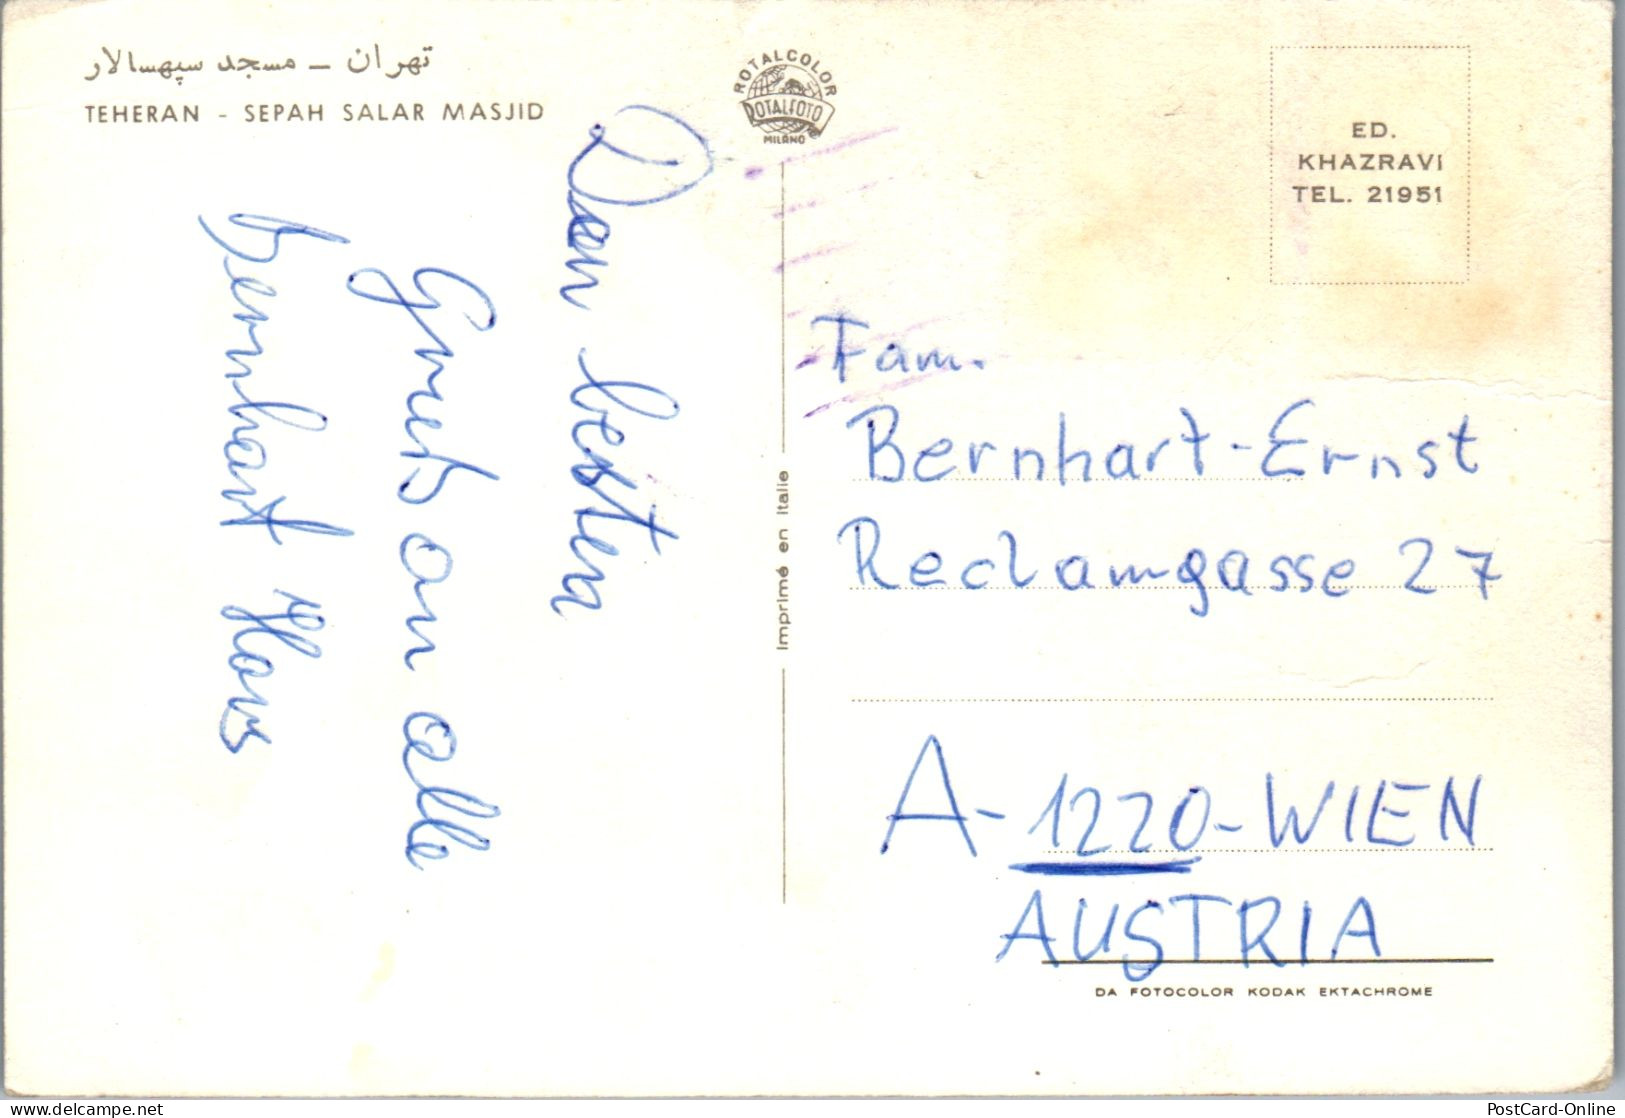 تهران – مسجد سپهسالار
TEHERAN - SEPAH SALAR MASJID
ROTALCOLOR
ROTALFOTO
MILANO
ED.
KHAZRAVI
TEL. 21951
Den besten
Gruß an alle
Bernhart Hans
Imprimé en Italie
Fam.
Bernhart-Ernst
Reclamgasse 27
A-1220-WIEN
AUSTRIA
DA FOTOCOLOR KODAK EKTACHROME
PostCard-Online